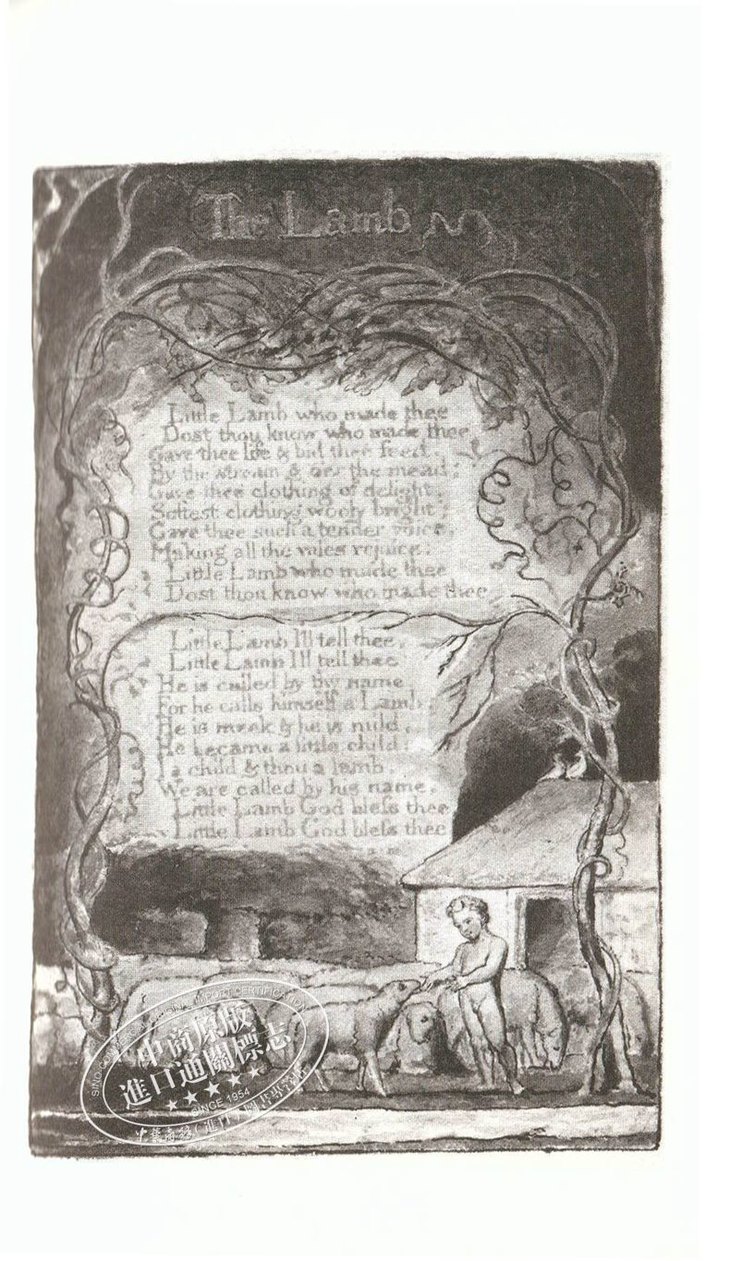 The Lamb
Little Lamb who made thee
Dost thou know who made thee
Gave thee life & bid thee feed.
By the stream & o'er the mead;
Gave thee clothing of delight,
Softest clothing wooly bright;
Gave thee such a tender voice,
Making all the vales rejoice:
Little Lamb who made thee
Dost thou know who made thee
Little Lamb I'll tell thee,
Little Lamb I'll tell thee
He is called by thy name
For he calls himself a Lamb:
He is meek & he is mild,
He became a little child:
I a child & thou a lamb,
We are called by his name.
Little Lamb God bleſs thee
Little Lamb God bleſs thee
中商原版
進口通關標志
★★★★★
SINCE 1954